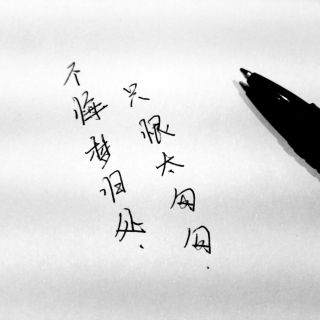 不悔梦归处.
只恨太匆匆.